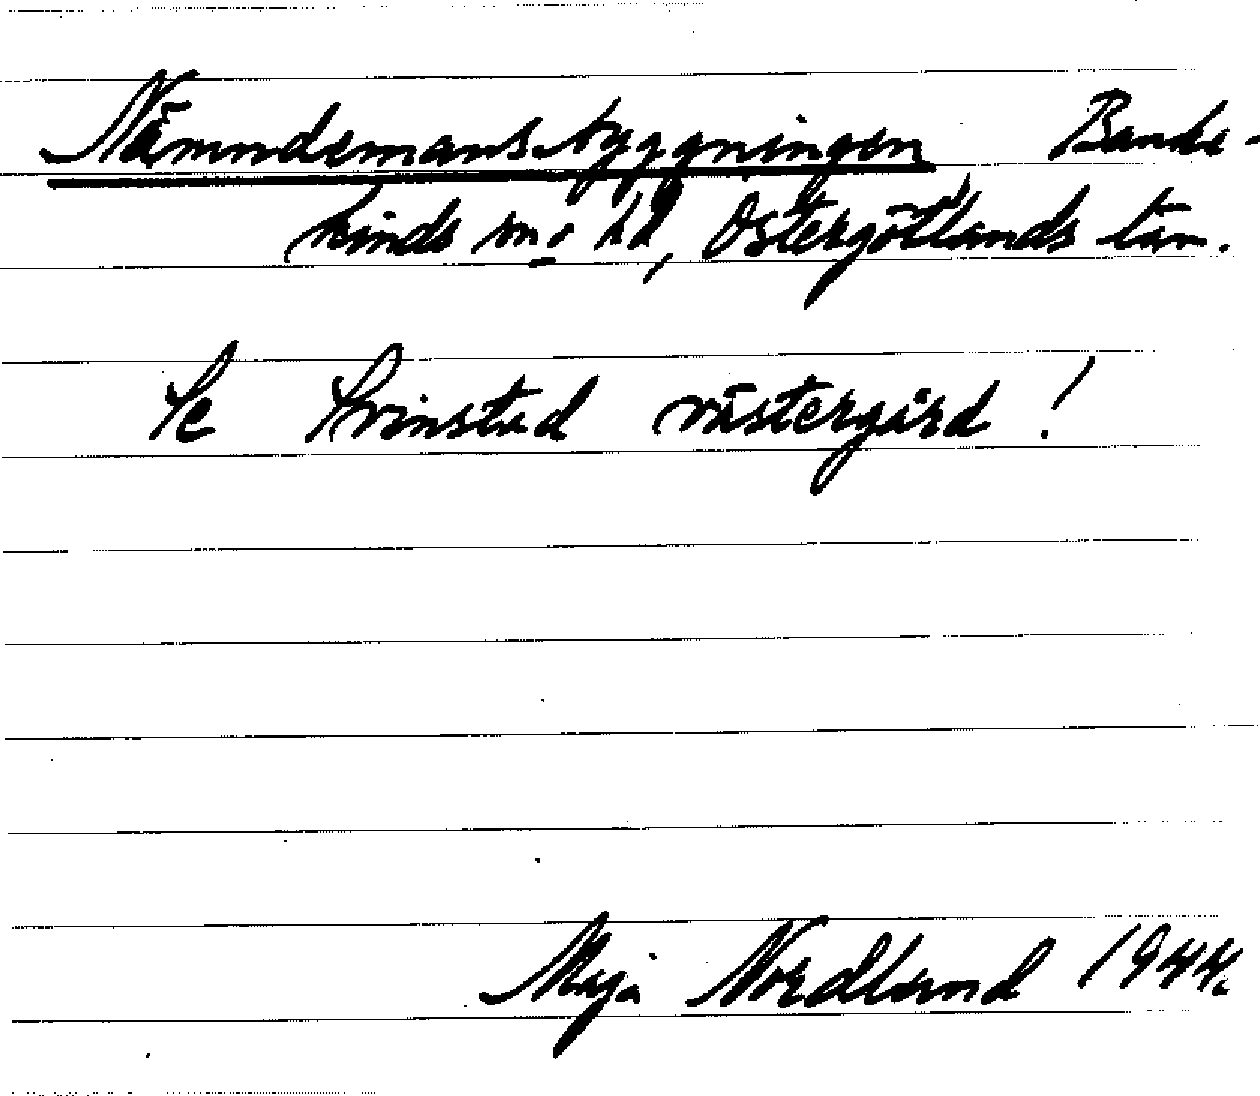 Nämndemansbyggningen Bande-
kinds sn. hd, Östergötlands län.
Se Svinstad västergård!
Maja Nordlund 1944.